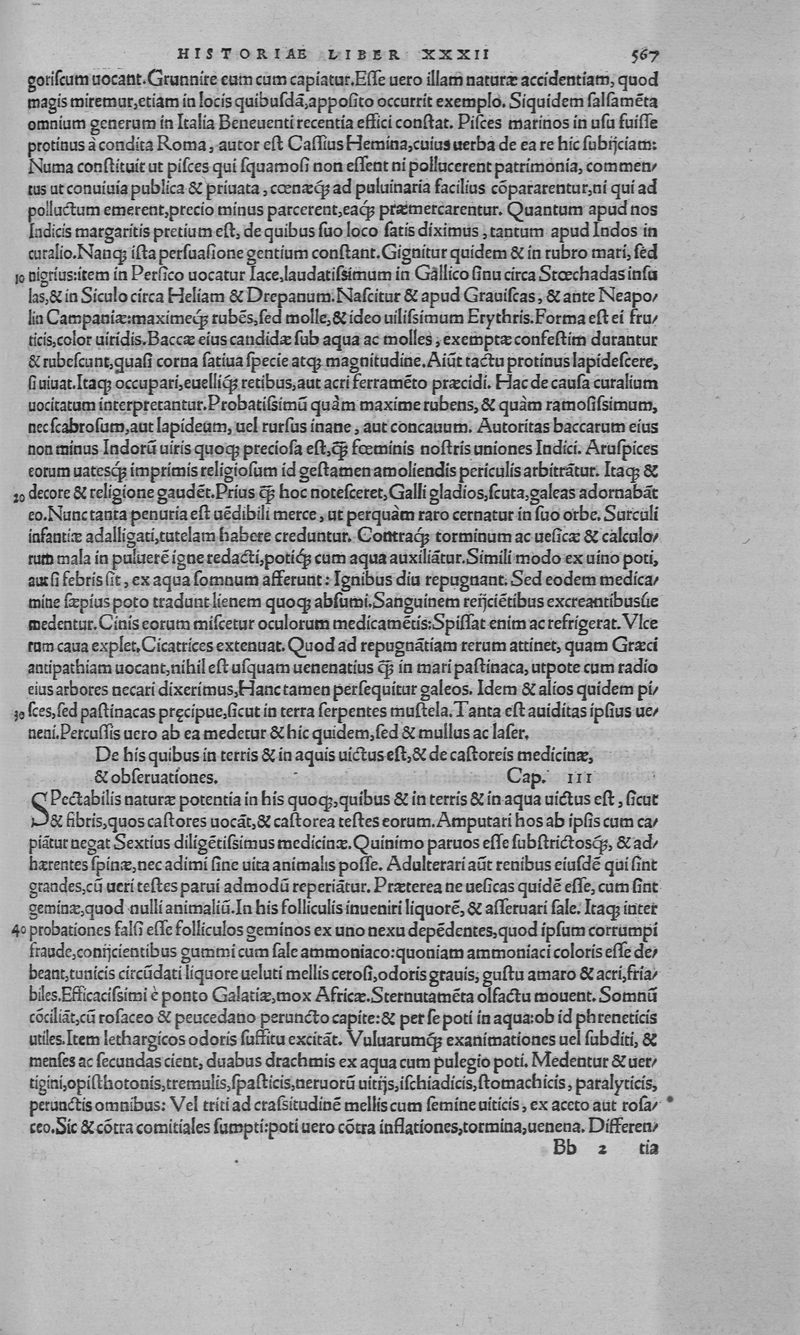 HISTORIAE LIBER XXXII 567
goriſcum uocant.Grunnire eum cum capiatur.Eſſe uero illam naturæ accidentiam, quod
magis miremur,etiam in locis quibuſdā,appoſito occurrit exemplo. Siquidem ſalſamēta
omnium generum in Italia Beneuenti recentia effici conſtat. Piſces marinos in uſu fuiſſe
protinus à condita Roma, autor eſt Caſſius Hemina,cuius uerba de ea re hic ſubijciam:
Numa conſtituit ut piſces qui ſquamoſi non eſſent ni pollucerent patrimonia, commen/
tus ut conuiuia publica & priuata, cœnæq́; ad puluinaria facilius cōpararentur,ni qui ad
polluctum emerent,precio minus parcerent,eaq́; præmercarentur. Quantum apud nos
Indicis margaritis pretium eſt, de quibus ſuo loco ſatis diximus, tantum apud Indos in
curalio.Nanq; iſta perſuaſione gentium conſtant.Gignitur quidem & in rubro mari, ſed
10 nigrius:item in Perſico uocatur Iace,laudatiſsimum in Gallico ſinu circa Stœchadas inſu
las,& in Siculo circa Heliam & Drepanum.Naſcitur & apud Grauiſcas, & ante Neapo/
lin Campaniæ:maximeq́; rubēs,ſed molle,& ideo uiliſsimum Erythris.Forma eſt ei fru/
ticis,color uiridis.Baccæ eius candidæ ſub aqua ac molles, exemptæ confeſtim durantur
& rubeſcunt,quaſi corna ſatiua ſpecie atq; magnitudine.Aiūt tactu protinus lapideſcere,
ſi uiuat.Itaq; occupari,euelliq́; retibus,aut acri ferramēto præcidi. Hac de cauſa curalium
uocitatum interpretantur.Probatiſsimū quàm maxime rubens, & quàm ramoſiſsimum,
nec ſcabroſum,aut lapideum, uel rurſus inane, aut concauum. Autoritas baccarum eius
non minus Indorū uiris quoq; precioſa eſt,q̄ fœminis noſtris uniones Indici. Aruſpices
eorum uatesq́; imprimis religioſum id geſtamen amoliendis periculis arbitrātur. Itaq; &
20 decore & religione gaudēt.Prius q̄ hoc noteſceret,Galli gladios,ſcuta,galeas adornabāt
eo.Nunc tanta penuria eſt uēdibili merce, ut perquàm raro cernatur in ſuo orbe. Surculi
infantiæ adalligati,tutelam habere creduntur. Contraq́; torminum ac ueſicæ & calculo/
rum mala in puluerē igne redacti,potiq́; cum aqua auxiliātur.Simili modo ex uino poti,
aut ſi febris ſit, ex aqua ſomnum afferunt: Ignibus diu repugnant. Sed eodem medica/
mine ſæpius poto tradunt lienem quoq; abſumi.Sanguinem reijciētibus excreantibusúe
medentur.Cinis eorum miſcetur oculorum medicamētis:Spiſſat enim ac refrigerat.Vlce
rum caua explet.Cicatrices extenuat. Quod ad repugnātiam rerum attinet, quam Græci
antipathiam uocant,nihil eſt uſquam uenenatius q̄ in mari paſtinaca, utpote cum radio
eius arbores necari dixerimus,Hanc tamen perſequitur galeos. Idem & alios quidem pi/
30 ſces,ſed paſtinacas pręcipue,ſicut in terra ſerpentes muſtela.Tanta eſt auiditas ipſius ue/
neni.Percuſſis uero ab ea medetur & hic quidem,ſed & mullus ac laſer.
De his quibus in terris & in aquis uictus eſt,& de caſtoreis medicinæ,
& obſeruationes. Cap. III
SPectabilis naturæ potentia in his quoq;,quibus & in terris & in aqua uictus eſt, ſicut
& fibris,quos caſtores uocāt,& caſtorea teſtes eorum.Amputari hos ab ipſis cum ca/
piātur negat Sextius diligētiſsimus medicinæ. Quinimo paruos eſſe ſubſtrictosq́;, & ad/
hærentes ſpinæ,nec adimi ſine uita animalis poſſe. Adulterari aūt renibus eiuſdē qui ſint
grandes,cū ueri teſtes parui admodū reperiātur. Præterea ne ueſicas quidē eſſe, cum ſint
geminæ,quod nulli animaliū.In his folliculis inueniri liquorē, & aſſeruari ſale. Itaq; inter
40 probationes falſi eſſe folliculos geminos ex uno nexu depēdentes,quod ipſum corrumpi
fraude,conijcientibus gummi cum ſale ammoniaco:quoniam ammoniaci coloris eſſe de/
beant,tunicis circūdati liquore ueluti mellis ceroſi,odoris grauis, guſtu amaro & acri,fria/
biles.Efficaciſsimi è ponto Galatiæ,mox Africæ.Sternutamēta olfactu mouent. Somnū
cōciliāt,cū roſaceo & peucedano peruncto capite:& per ſe poti in aqua:ob id phreneticis
utiles.Item lethargicos odoris ſuffitu excitāt. Vuluarumq́; exanimationes uel ſubditi, &
menſes ac ſecundas cient, duabus drachmis ex aqua cum pulegio poti. Medentur & uer/
tigini,opiſthotonis,tremulis,ſpaſticis,neruorū uitijs,iſchiadicis,ſtomachicis, paralyticis,
perunctis omnibus: Vel triti ad craſsitudinē mellis cum ſemine uiticis, ex aceto aut roſa/
ceo.Sic & cōtra comitiales ſumpti:poti uero cōtra inflationes,tormina,uenena. Differen/
Bb 2 tia